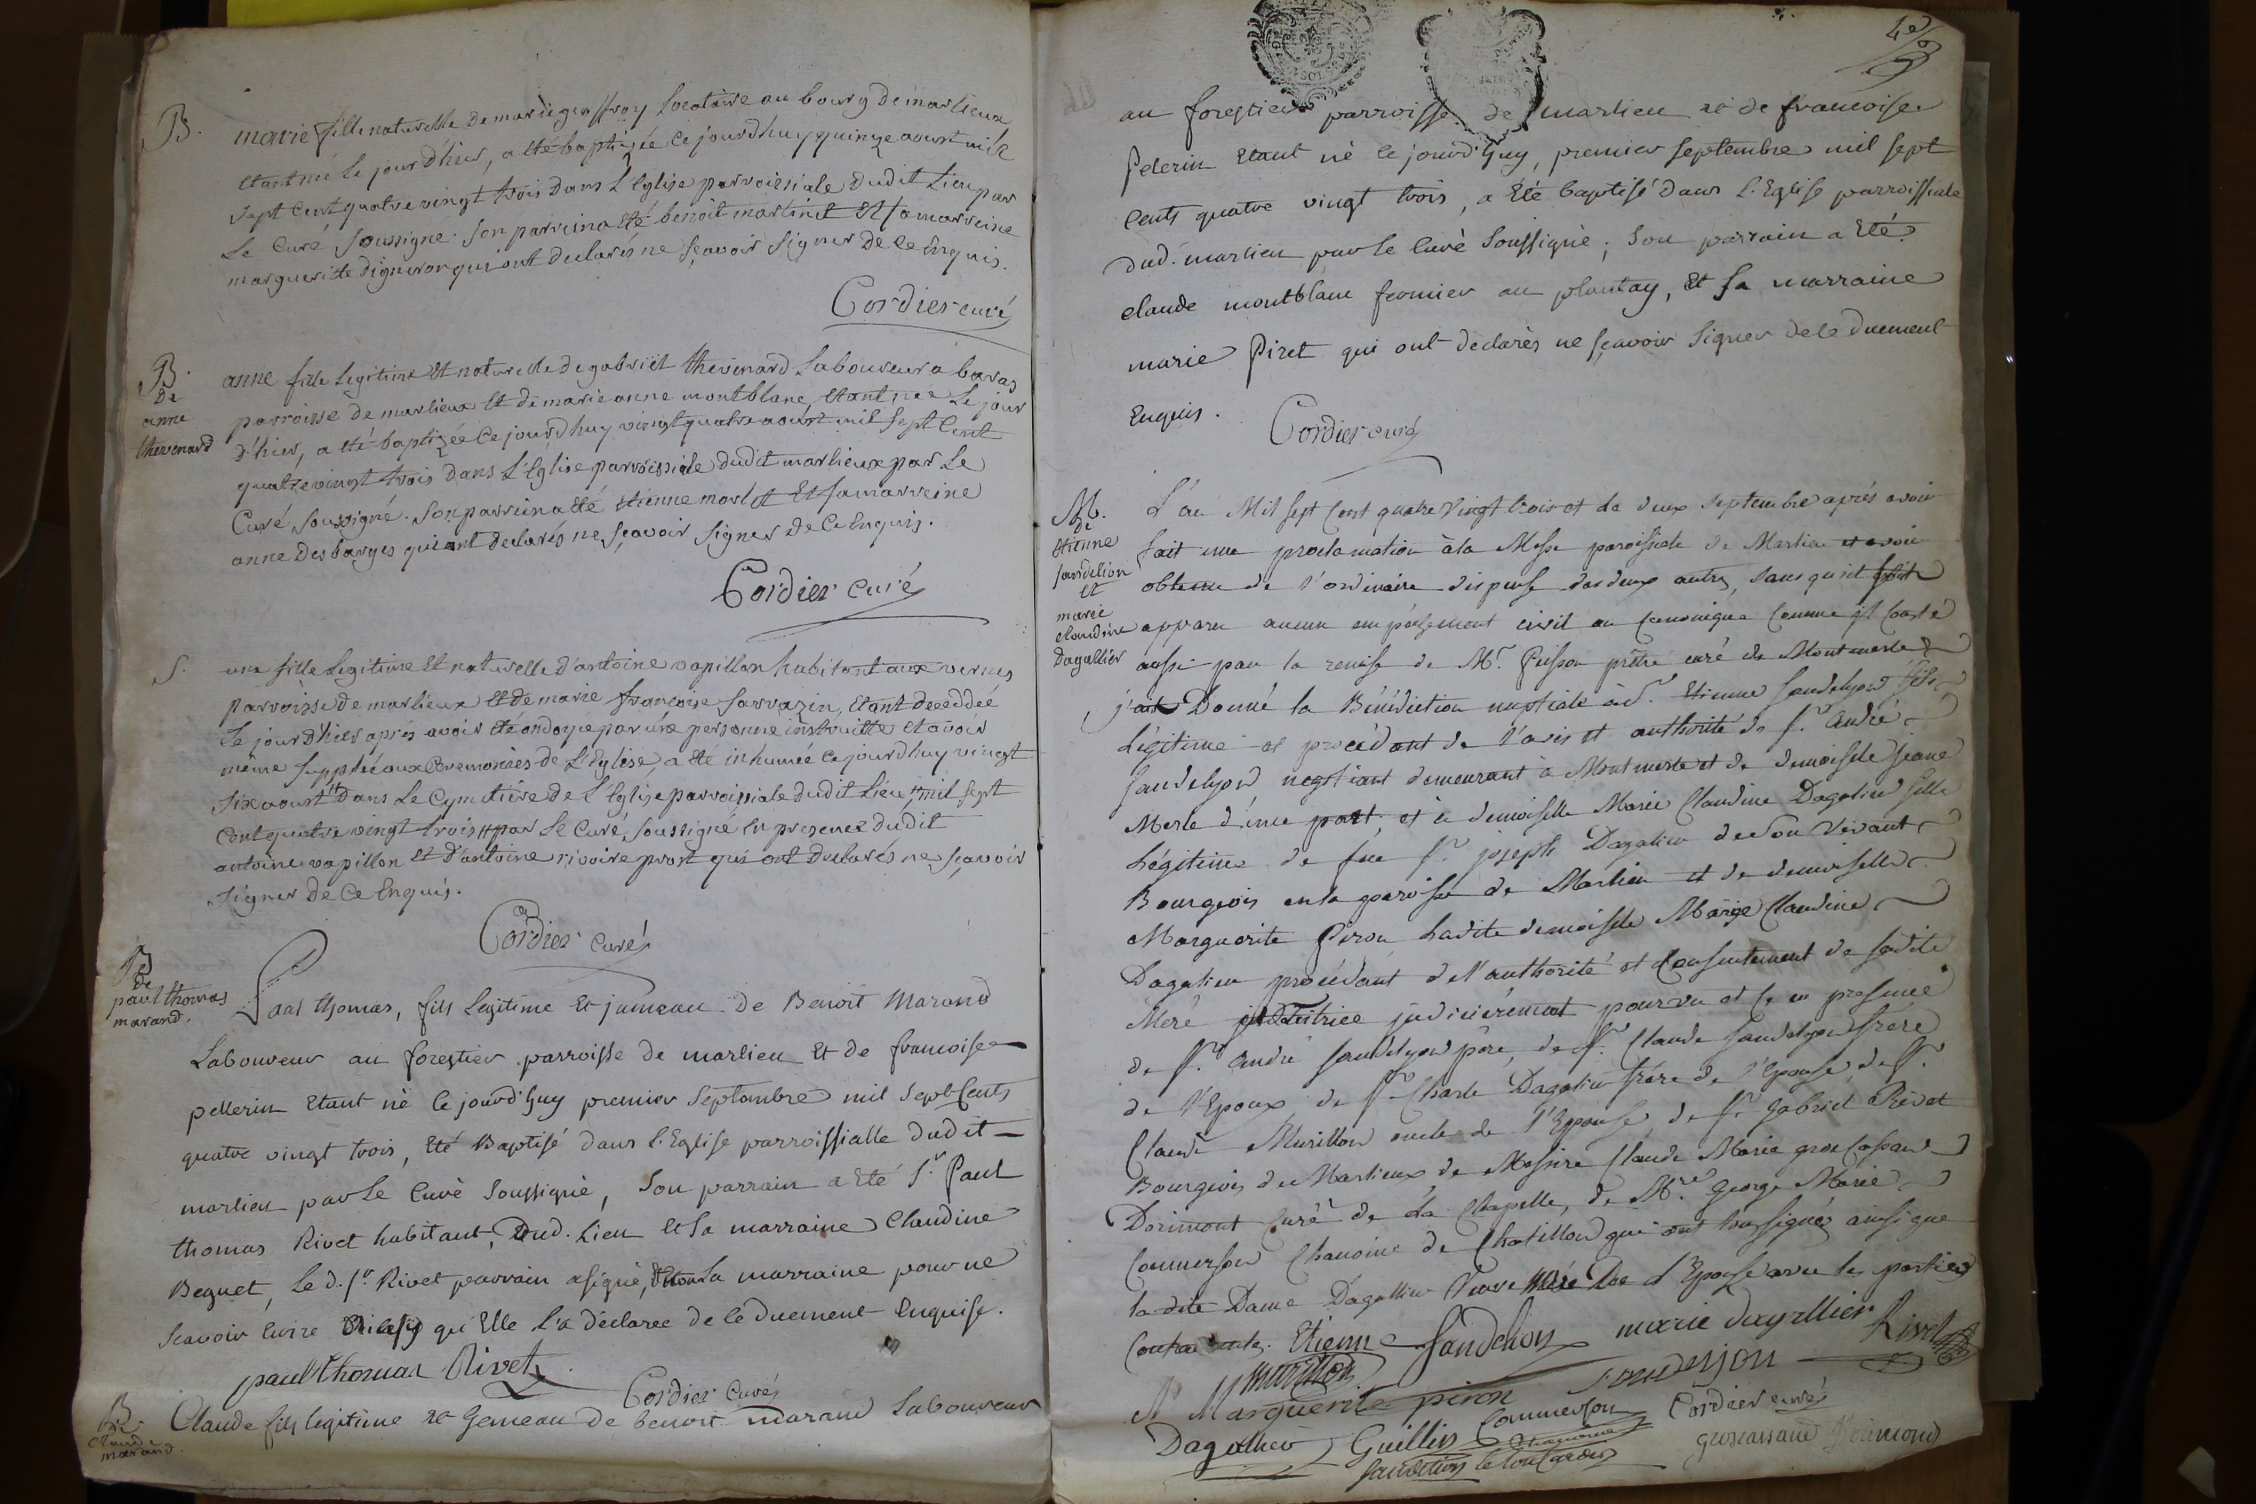 B.
marie fille naturelle de marie geoffroy locataire au bourg de marlieux
étant née le jour d'hier, a été baptizée ce jourd'huy quinze aoust mil
sept cent quatre vingt trois dans l'Eglise parroissiale dudit lieu par
le Curé soussigné. son parrein a été benoit martinet et sa marreine
marguerite vigneron qui ont declarés ne sçavoir signer de ce enquis.
Cordier curé
B.
De
anne
thevenard
anne fille legitime et naturelle de gabriel thevenard laboureur a baras
parroisse de marlieux et de marie anne montblanc, étant née le jour
d'hier, a été baptizée ce jourd'huy vingt quatre aoust mil sept cent
quatre vingt trois dans l'Eglise parroissiale dudit marlieux par le
Curé soussigné. son parrein a été étienne morlet et sa marreine
anne Desbarges qui ont declarés ne sçavoir signer de ce enquis.
Cordier curé
S.
une fille legitime et naturelle d'antoine vapillon habitant aux vernes
parroisse de marlieux et de marie francoise sarrazin, étant deceddée
le jour d'hier après avoir été ondoyé par une personne instruitte et avoir
même suppleé aux Ceremonies de l'Eglise, a été inhumée ce jourd'huy vingt
six aoust dans le Cymetière de l'Eglise parroissiale dudit lieu, mil sept
cent quatre vingt trois par le Curé soussigné en presence dudit
antoine vapillon et d'antoine rivoire prost qui ont declarés ne sçavoir
signer de ce enquis.
Cordier curé
B
de
paul thomas
marand.
Paul thomas, fils legitime et jumeau de Benoit Marand
Laboureur au forestier parroisse de marlieu et de francoise
pellerin etant né ce jourd'huy premier septembre mil sept cents
quatre vingt trois, Eté Baptisé dans l'Eglise parroissialle dudit
marlieu par le Curé soussigné, son parrain a Eté Sr. Paul
thomas Rivet habitant dud. Lieu et sa marraine Claudine
Beguet, le d. Sr. Rivet parrain a signé, la marraine pour ne
scavoir Ecrire qu'Elle l'a déclaree de ce duement Enquise.
paul thomas Rivet
Cordier curé
B
De
Claude
marand.
Claude fils legitime et Gemeau de benoit marand Laboureur
4e
au forestier parroisse de marlieu et de francoise
Pelerin Etant né ce jourd'huy, premier septembre mil sept
cents quatre vingt trois, a Eté baptisé dans l'Eglise parroissiale
dud. marlieu par le Curé soussigné; son parrain a Eté
claude montblanc fermier au plantay, et sa marraine
marie Piret qui ont déclarés ne sçavoir signer de ce duement
Enquis.
Cordier curé
M.
de
étienne
sandelion
et
marie
claudine
Dagallier
L'an Mil sept cent quatre vingt trois et le deux septembre après avoir
fait une proclamation à la Messe paroissiale de Marlieu et avoir
obtenu de l'ordinaire dispense des deux autres, sans qu'il soit
apparu aucun empéchement civil ou canonique comme il conste
aussi par la remise de Mr. Puisson prêtre curé de Montmerle
j'ai Donné la Bénédiction nuptiale à Sr. Etienne Sandelyon fils
Légitime et procédant de l'avis et authorité de Sr. André
Sandelyon negotiant demeurant à Montmerle et de demoiselle Jeane
Merle d'une part, et à demoiselle Marie Claudine Dagalier fille
Légitime de feu Sr. joseph Dagalier de Son Vivant
Bourgeois en la paroisse de Marlieu et de demoiselle
Marguerite Piron Ladite demoiselle Marie Claudine
Dagalier procédant de l'authorité et Consentement de sadite
Mere tutrice judicièrement pourvu et ce en presence
de Sr. André Sandelyon père, de Sr. Claude Sandelyon frere
de l'Epoux, de Sr. Charle Dagalier frère de l'Epouse, de Sr.
Claude Murillon oncle de l'Epouse, de Sr. Gabriel Rivet
Bourgeois de Marlieux, de Messire Claude Marie groscassand
Dorimont Curé de La Chapelle, de Mre. George Marie
Commerson Chanoine de Chatillon qui ont soussignés ainsi que
la dite Dame Dagallier Veuve Mére de l'Epouse avec les parties
Contractantes. Etienne Sandelion marie dagallier Rivet
Murillon Sandelion
Marguerite piron Commerson Cordier curé
Dagallier Guillin Chanoine groscassand Dorimond
Sandelion